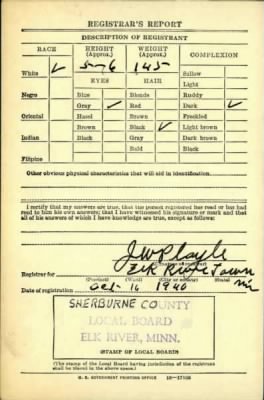 REGISTRAR'S REPORT
DESCRIPTION OF REGISTRANT
RACE HEIGHT (Approx.) WEIGHT (Approx.) COMPLEXION
White ✓ 5-6 145 Sallow
EYES HAIR Light
Negro Blue Blonde Ruddy
Gray ✓ Red Dark ✓
Oriental Hazel Brown Freckled
Brown Black ✓ Light brown
Indian Black Gray Dark brown
Bald Black
Filipino
Other obvious physical characteristics that will aid in identification
I certify that my answers are true; that the person registered has read or has had
read to him his own answers; that I have witnessed his signature or mark and that
all of his answers of which I have knowledge are true, except as follows:
Registrar for Elk River Town
(Precinct) (Ward) (City or county) (State)
Date of registration Oct. 16 1940
SHERBURNE COUNTY
LOCAL BOARD
ELK RIVER, MINN.
(STAMP OF LOCAL BOARD)
(The stamp of the Local Board having jurisdiction of the registrant
shall be placed in the above space.)
U. S. GOVERNMENT PRINTING OFFICE